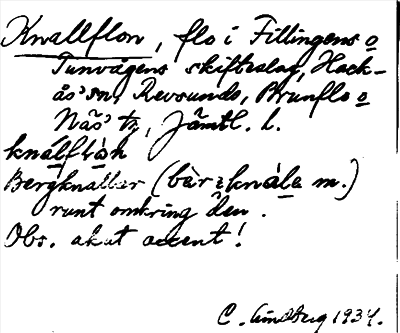 Knallflon, flo i Fillingens o
Tunvågens skifteslag, Hack-
ås' sn, Revsunds, Brunflo o
Näs' tg, Jämtl. l.
knálflòn
Bergknallar (bàrzknála m.)
runt omkring den.
Obs. akut accent!
C. Lindberg 1934.